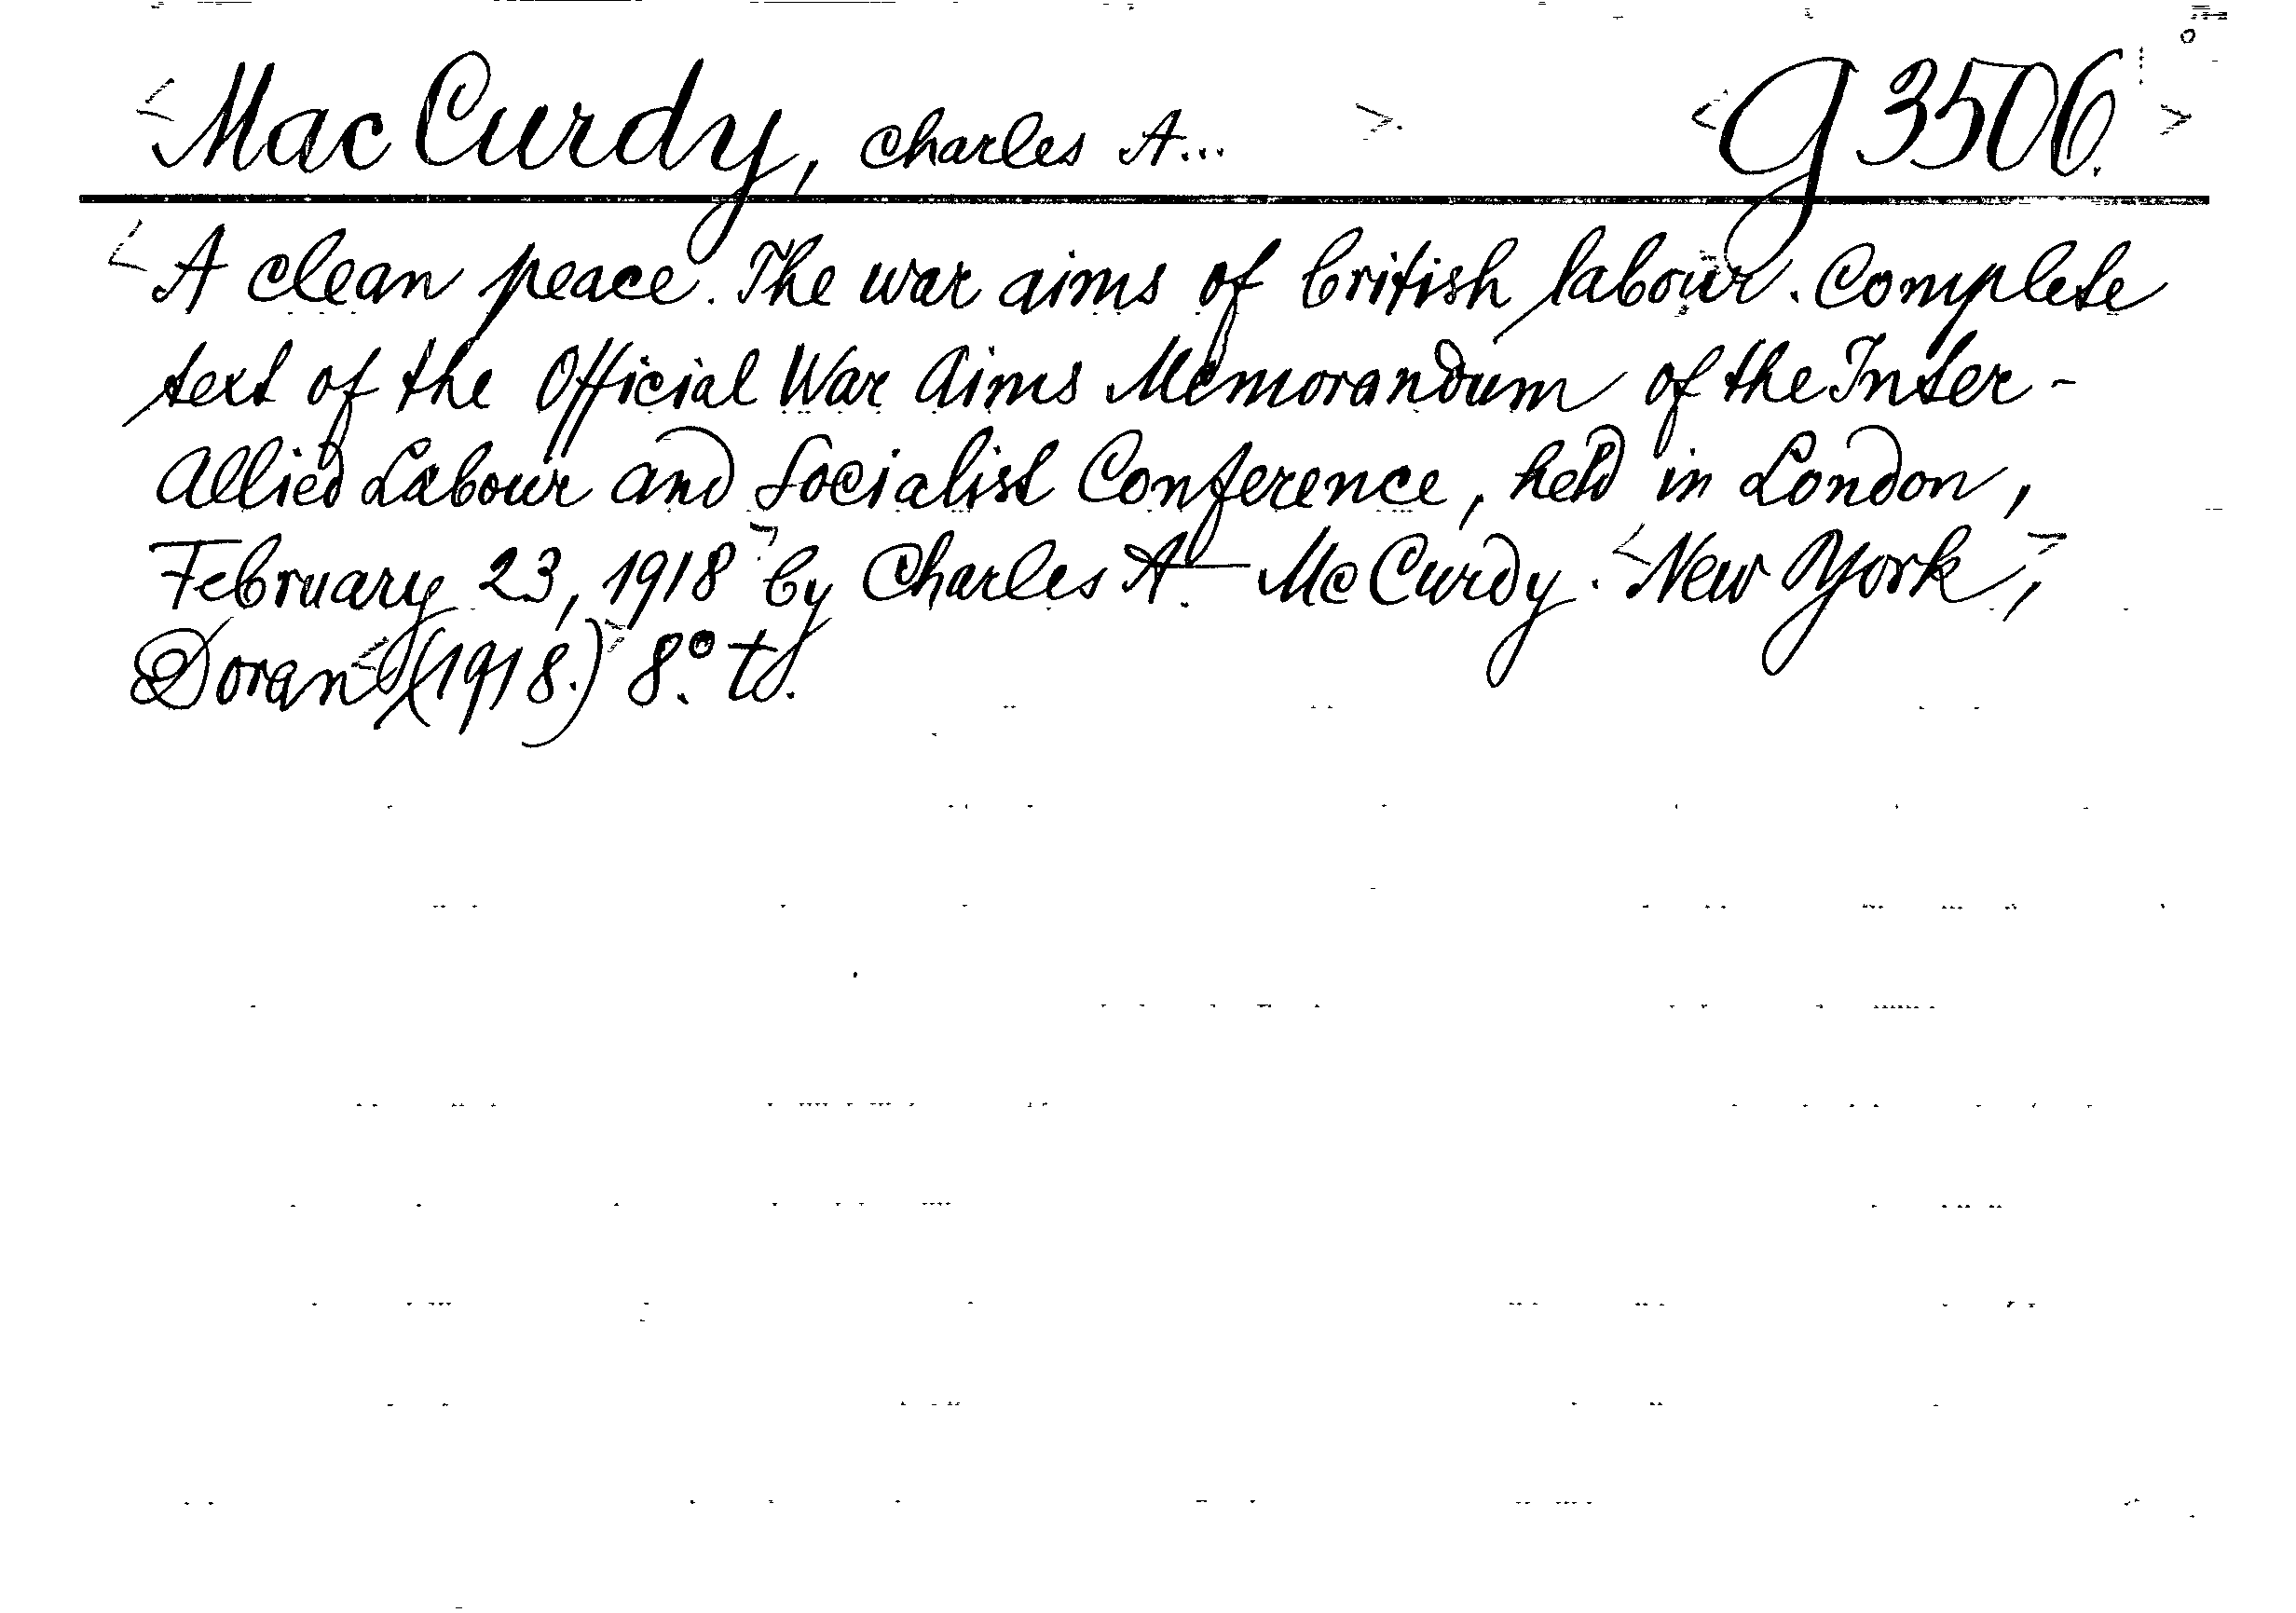 <MacCurdy, Charles A... >. <G 3506.>
<A clean peace. The war aims of british labour. Complete
text of the Official War Aims Memorandum of the Inter-
Allied Labour and Socialist Conference, held in London,
February 23, 1918> by Charles A. McCurdy. <New York>,
Doran <(1918.)> 8.°